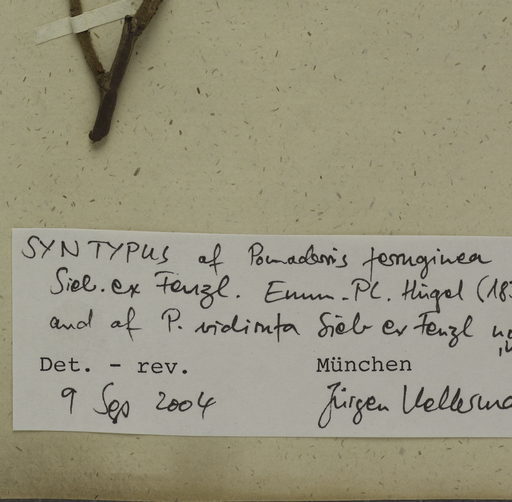 SYNTYPUS of Pomaderris ferruginea
Sieb. ex Fenzl. Enum. Pl. Hügel (183
and of P. vidimta Sieb ex Fenzl
Det. - rev. München
9 Sep 2004 Jürgen Kellerma